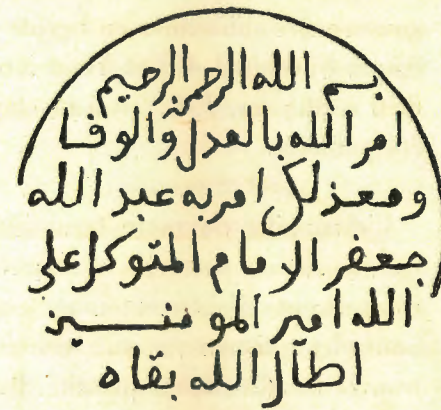 بسم الله الرحمن الرحيم
امر الله بالعدل والوفا
ومعذلك امر به عبد الله
جعفر الامام المتوكل على
الله امير المومنين
اطال الله بقاه